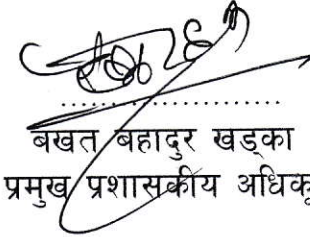 ....................
बखत बहादुर खड्का
प्रमुख प्रशासकीय अधिकृ